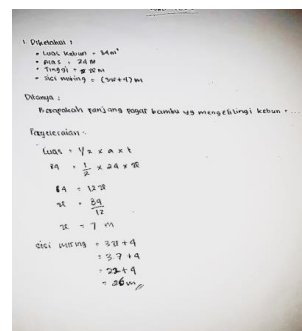 1. Diketahui :
• Luas kebun = 84 m²
• Alas = 24 m
• Tinggi = x m
• Sisi miring = (3x+4) m
Ditanya :
Berapakah panjang pagar bambu yg mengelilingi kebun = ...
Penyelesaian :
Luas = 1/2 x a x t
84 = 1/2 x 24 x x
84 = 12 x
x = 84/12
x = 7 m
sisi miring = 3x+4
= 3.7 +4
= 22+4
= 26 m //